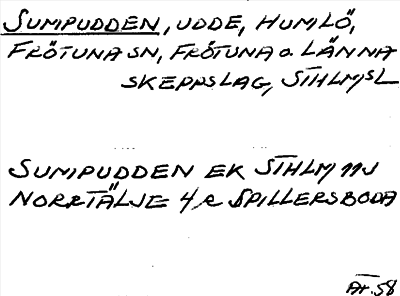 SUMPUDDEN, UDDE, HUMLÖ,
FRÖTUNA SN, FRÖTUNA O. LÄNNA
SKEPPSLAG, STHLMSL
SUMPUDDEN EK STHLM 11J
NORRTÄLJE 4 R SPILLERSBODA
AT. 58